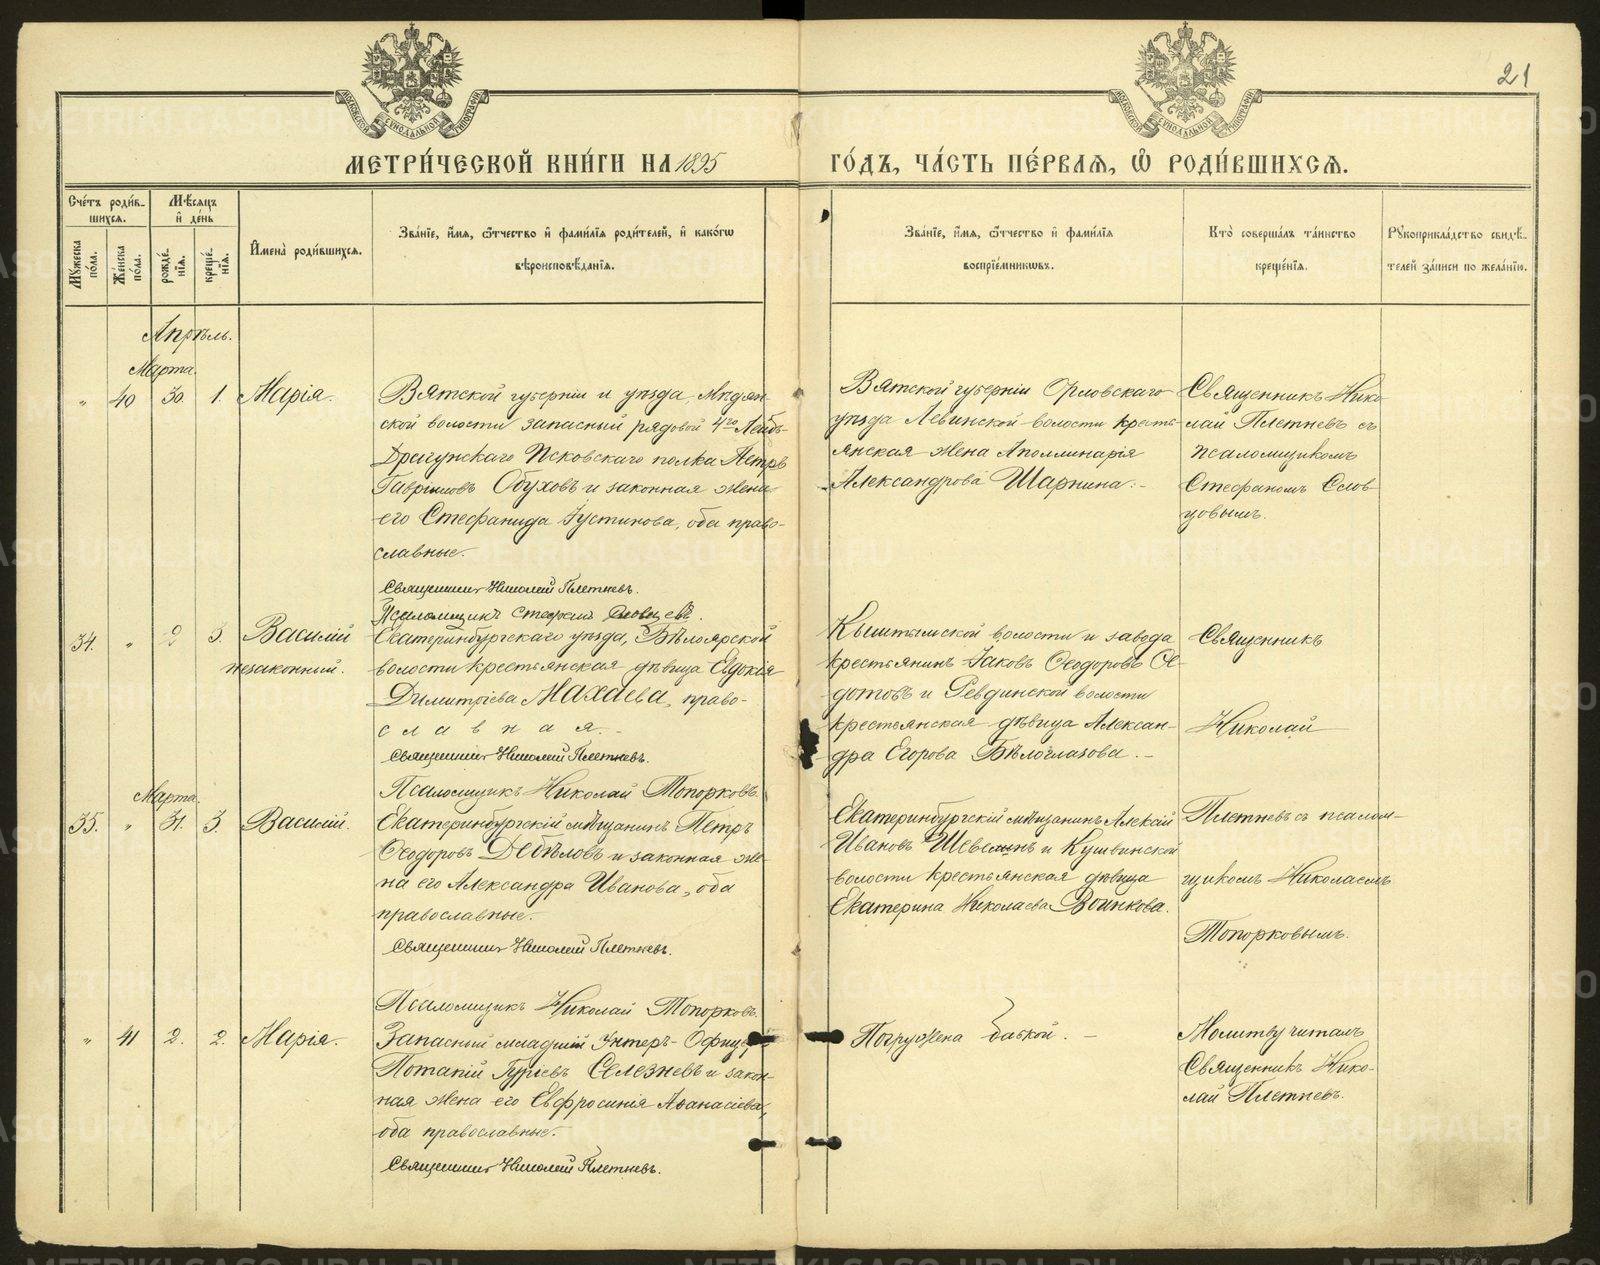 21
МЕТРИ́ЧЕСКОЙ КНИ́ГИ НА 1895 ГО́ДЪ, ЧА́СТЬ ПЕ́РВАЯ, Ѡ҆ РОДИ́ВШИХСѦ.
Сче́тъ роди́в-
шихся.
Мѣ́сяцъ
и҆ де́нь
Мꙋ́жеска по́ла.
Же́нска по́ла.
рожде́-
нїя.
креще́-
нїя.
И҆мена̀ роди́вшихся.
Зва́нїе, и҆́мя, ѻ҆́тчество и҆ фами́лїя роди́телей, и҆ како́гѡ
вѣроисповѣ́данїя.
Зва́нїе, и҆́мя, ѻ҆́тчество и҆ фами́лїя
воспрїе́мниковъ.
Кто̀ соверша́лъ та́инство
креще́нїя.
Рꙋкоприкла́дство свидѣ́-
телей за́писи по жела́нїю.
Апрѣль.
Марта.
" 40 30. 1. Марія.
Вятской губерніи и уѣзда, Мкдян-
ской волости запасный рядовой 4го Лейбъ-
Драгунскаго Псковскаго полка Петръ
Гавриловъ Обуховъ и законная жена
его Стефанида Іустинова, оба право-
славные.
Священникъ Николай Плетневъ.
Псаломщикъ Стефанъ Словцевъ.
Вятской губерніи Орловскаго
уѣзда Левинской волости кресть-
янская жена Аполлинарія
Александрова Шарнина. -
Священникъ Нико-
лай Плетневъ съ
псаломщикомъ
Стефаномъ Слов-
цовымъ.
34. " 2 3. Василій
незаконный.
Екатеринбургскаго уѣзда, Бѣлоярской
волости крестьянская дѣвица Евдокія
Димитріева Махаева, право-
славная. -
Священникъ Николай Плетневъ.
Псаломщикъ Николай Топорковъ.
Кыштымской волости и завода
крестьянинъ Іаковъ Ѳеодоровъ Ѳе-
дотовъ и Ревдинской волости
крестьянская дѣвица Алексан-
дра Егорова Бѣлоглазова. -
Священникъ
Николай
Марта.
35. " 31. 3. Василій.
Екатеринбургскій мѣщанинъ Петръ
Ѳеодоровъ Дебѣловъ и законная же-
на его Александра Иванова, оба
православные.
Священникъ Николай Плетневъ.
Псаломщикъ Николай Топорковъ.
Екатеринбургскій мѣщанинъ Алексій
Ивановъ Шевелинъ и Кушвинской
волости крестьянская дѣвица
Екатерина Николаева Воинкова.
Плетневъ съ псалом-
щикомъ Николаемъ
Топорковымъ.
" 41 2. 2. Марія.
Запасный младшій Унтеръ-Офицеръ
Потапій Гуріевъ Селезневъ и закон-
ная жена его Евфросинія Аѳанасіева,
оба православные.
Священникъ Николай Плетневъ.
Погружена бабкой. -
Молитву читалъ
Священникъ Нико-
лай Плетневъ.